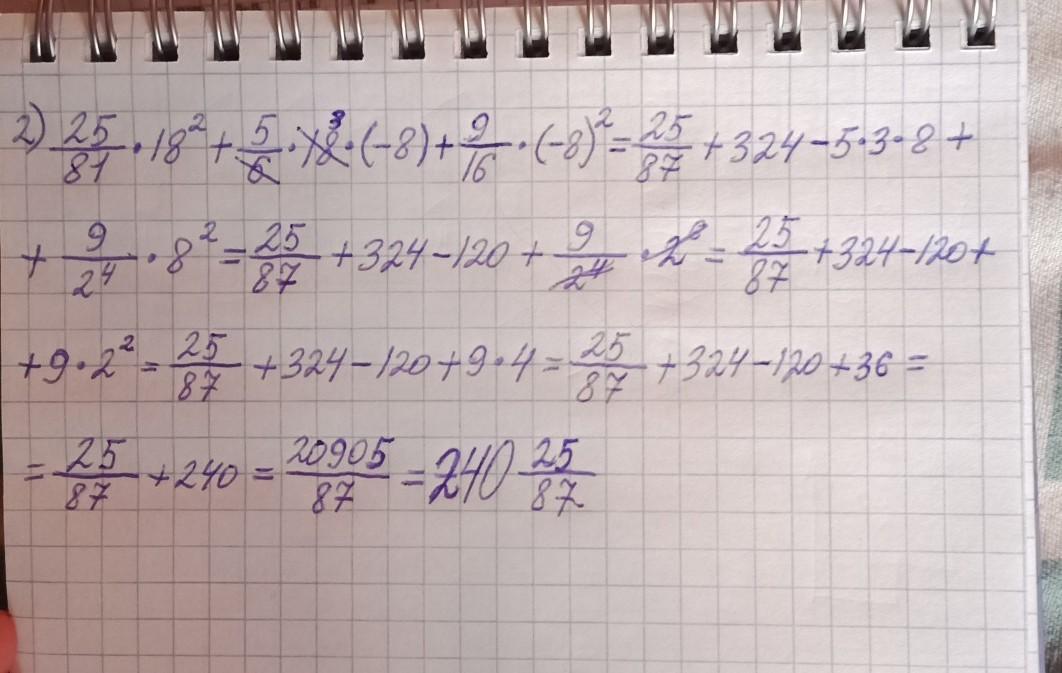 2) 25/81 · 18² + 5/6 · 18 3 · (-8) + 9/16 · (-8)² = 25/87 + 324 - 5·3·8 +
+ 9/2⁴ · 8² = 25/87 + 324 - 120 + 9/2⁴ · 2⁶ = 25/87 + 324 - 120 +
+ 9·2² = 25/87 + 324 - 120 + 9·4 = 25/87 + 324 - 120 + 36 =
= 25/87 + 240 = 20905/87 = 240 25/87